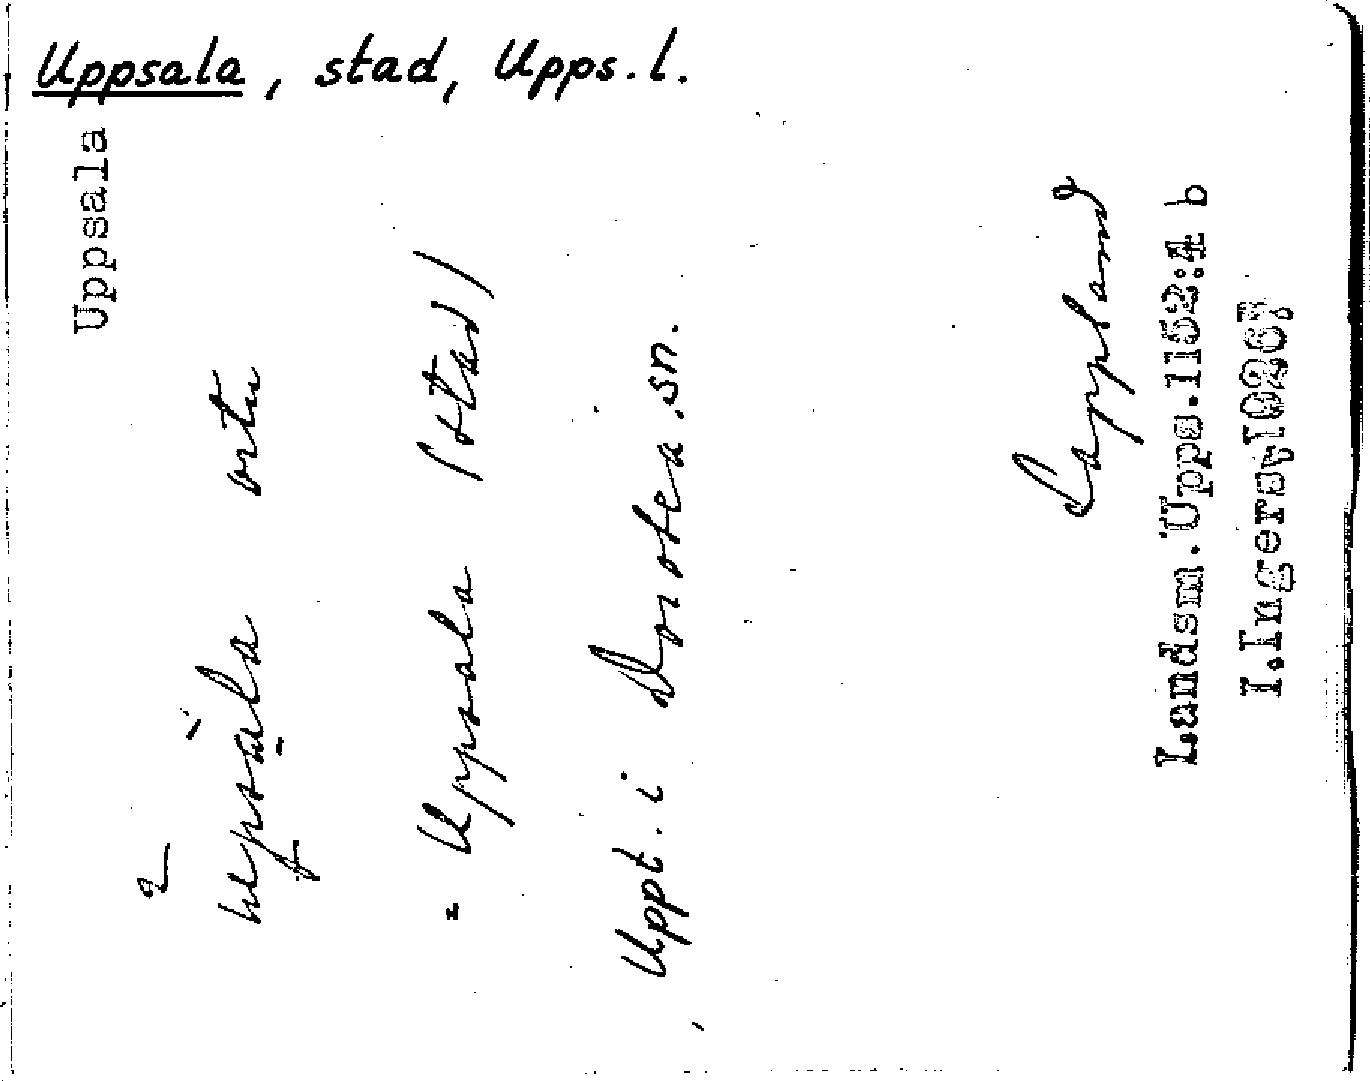 Uppsala, stad, Upps.l.
Uppsala
ortn
= Uppsala (stad)
Uppt. i Dorotea sn.
Lappland
Landsm. Upps. 1152:4 b
I. Ingers, 1926